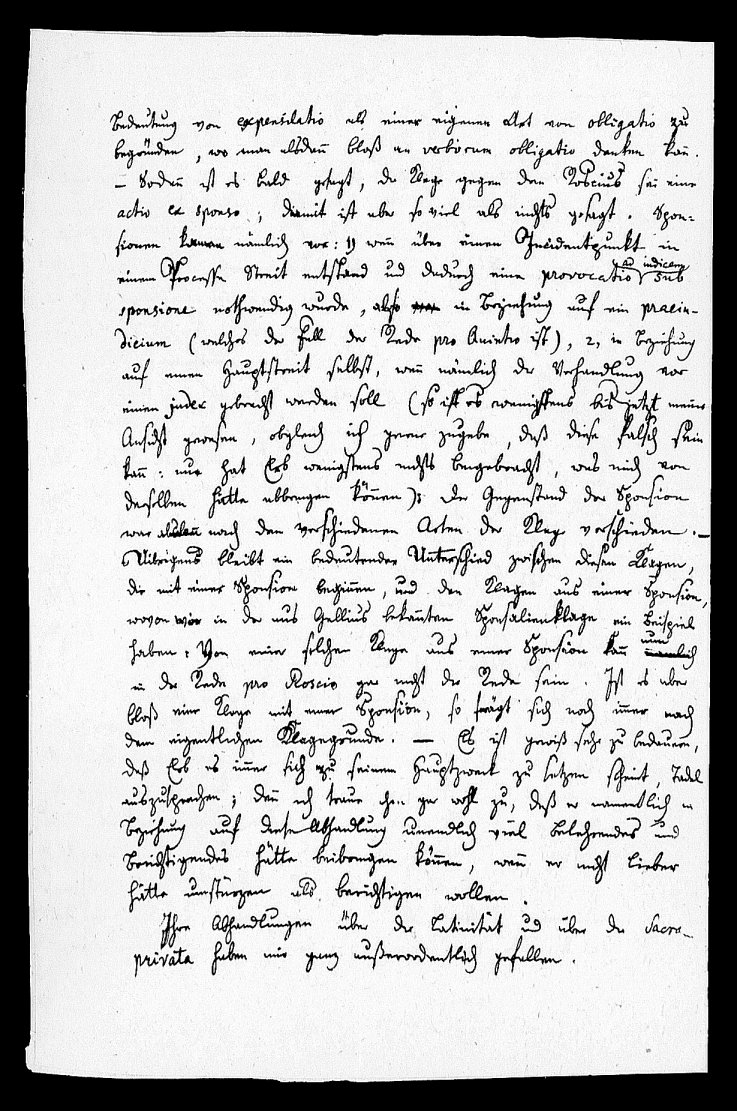 Bedeutung von expensilatio als einer eigenen Art von obligatio zu
begründen, wo man alsdañ bloß an verborum obligatio denken kañ.
– Sodañ ist es bald gesagt, die Klage gegen den Roscius sei eine
actio ex sponso; damit ist aber so viel als nichts gesagt. Spon-
sionen kamen nämlich vor: 1) weñ über einen Incidentpunkt in
einem Processe Streit entstand und dadurch eine provocatio ad iudicem sub
sponsione nothwendig wurde, also in Beziehung auf ein praeiu-
dicium (welches der Fall der Rede pro Quintio ist), 2, in Beziehung
auf einen Hauptstreit selbst, weñ nämlich die Verhandlung vor
einen judex gebracht werden soll (so ist es wenigstens bis jetzt meine
Ansicht gewesen, obgleich ich gerne zugebe, daß diese falsch sein
kañ: nur hat Erb wenigstens nichts beigebracht, was mich von
derselben hätte abbringen köñen); der Gegenstand der Sponsion
war alsdañ nach den verschiedenen Arten der Klage verschieden. –
Uibrigens bleibt ein bedeutender Unterschied zwischen diesen Klagen,
die mit einer Sponsion begiñen, und den Klagen aus einer Sponsion,
wovon wir in der aus Gellius bekañten Sponsalienklage ein Beispiel
haben: Von einer solchen Klage aus einer Sponsion kañ nun
in der Rede pro Roscio gar nicht die Rede sein. Ist es aber
bloß eine Klage mit einer Sponsion, so frägt sich noch im̃er nach
dem eigentlichen Klagegrunde. – Es ist gewiß sehr zu bedauern,
daß Erb es im̃er sich zu seinem Hauptzweck zu setzen scheint, Tadel
auszusprechen; deñ ich traue ihm gar wohl zu, daß er namentlich in
Beziehung auf diese Abhandlung unendlich viel Belehrendes und
Berichtigendes hätte beibringen köñen, weñ er nicht lieber
hätte umstürzen als berichtigen wollen.
Ihre Abhandlungen über die Latinität und über die Sacra
privata haben mir ganz außerordentlich gefallen.